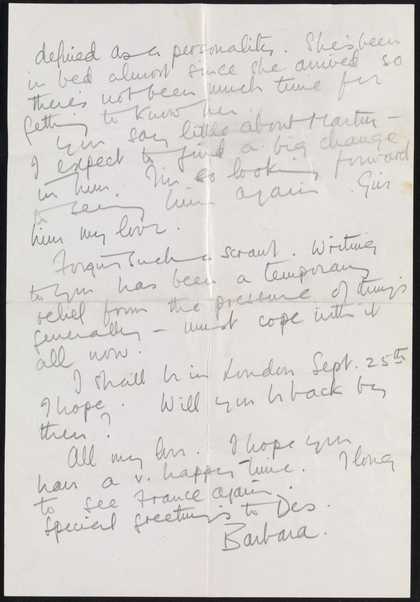 defined as a personality. She's been
in bed almost since she arrived so
there's not been much time for
getting to know her.
You say little about Martin –
I expect to find a big change
in him. I'm so looking forward
to seeing him again. Give
him my love.
Forgive such a scrawl. Writing
to you has been a temporary
relief from the pressure of things
generally – must cope with it
all now.
I shall be in London Sept. 25th
I hope. Will you be back by
then?
All my love. I hope you
have a v. happy time. I long
to see France again.
Special greetings to Des.
Barbara.